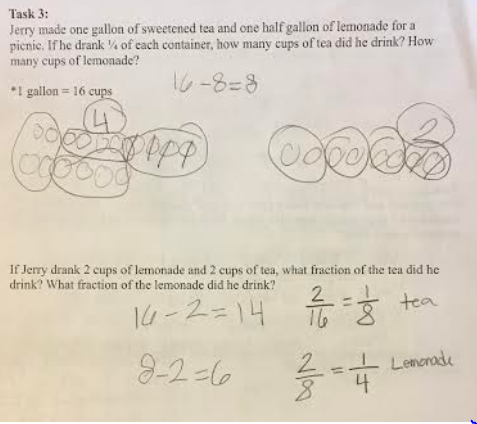 Task 3:
Jerry made one gallon of sweetened tea and one half gallon of lemonade for a
picnic. If he drank ¼ of each container, how many cups of tea did he drink? How
many cups of lemonade?
*1 gallon = 16 cups
16-8=8
4
2
If Jerry drank 2 cups of lemonade and 2 cups of tea, what fraction of the tea did he
drink? What fraction of the lemonade did he drink?
16-2=14
2/16 = 1/8 tea
8-2=6
2/8 = 1/4 Lemonade